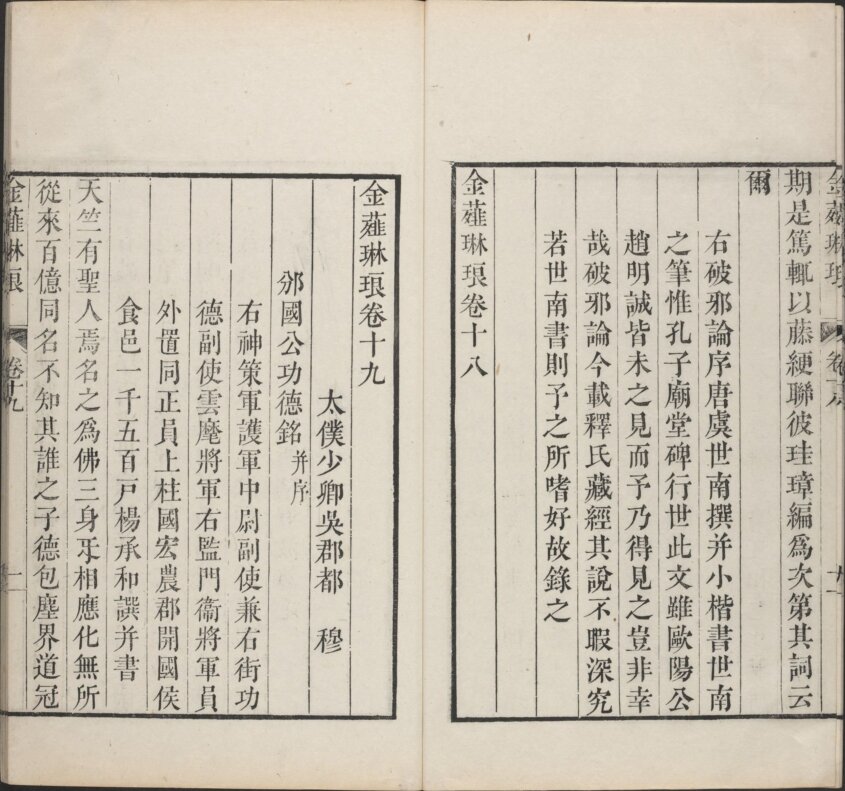 金薤琳琅
期是篤輒以藤綆聯彼珪璋編爲次第其詞云
爾
右破邪論序唐虞世南撰并小楷書世南
之筆惟孔子廟堂碑行世此文雖歐陽公
趙明誠皆未之見而予乃得見之豈非幸
哉破邪論今載釋氏藏經其說不暇深究
若世南書則予之所嗜好故錄之
金薤琳琅卷十八
金薤琳琅卷十九
太僕少卿吳郡都 穆
邠國公功德銘并序
右神策軍護軍中尉副使兼右街功
德副使雲麾將軍右監門衞將軍員
外置同正員上柱國宏農郡開國侯
食邑一千五百戶楊承和譔并書
天竺有聖人焉名之爲佛三身㸦相應化無所
從來百億同名不知其誰之子德包塵界道冠
金薤琳琅 卷十九 一